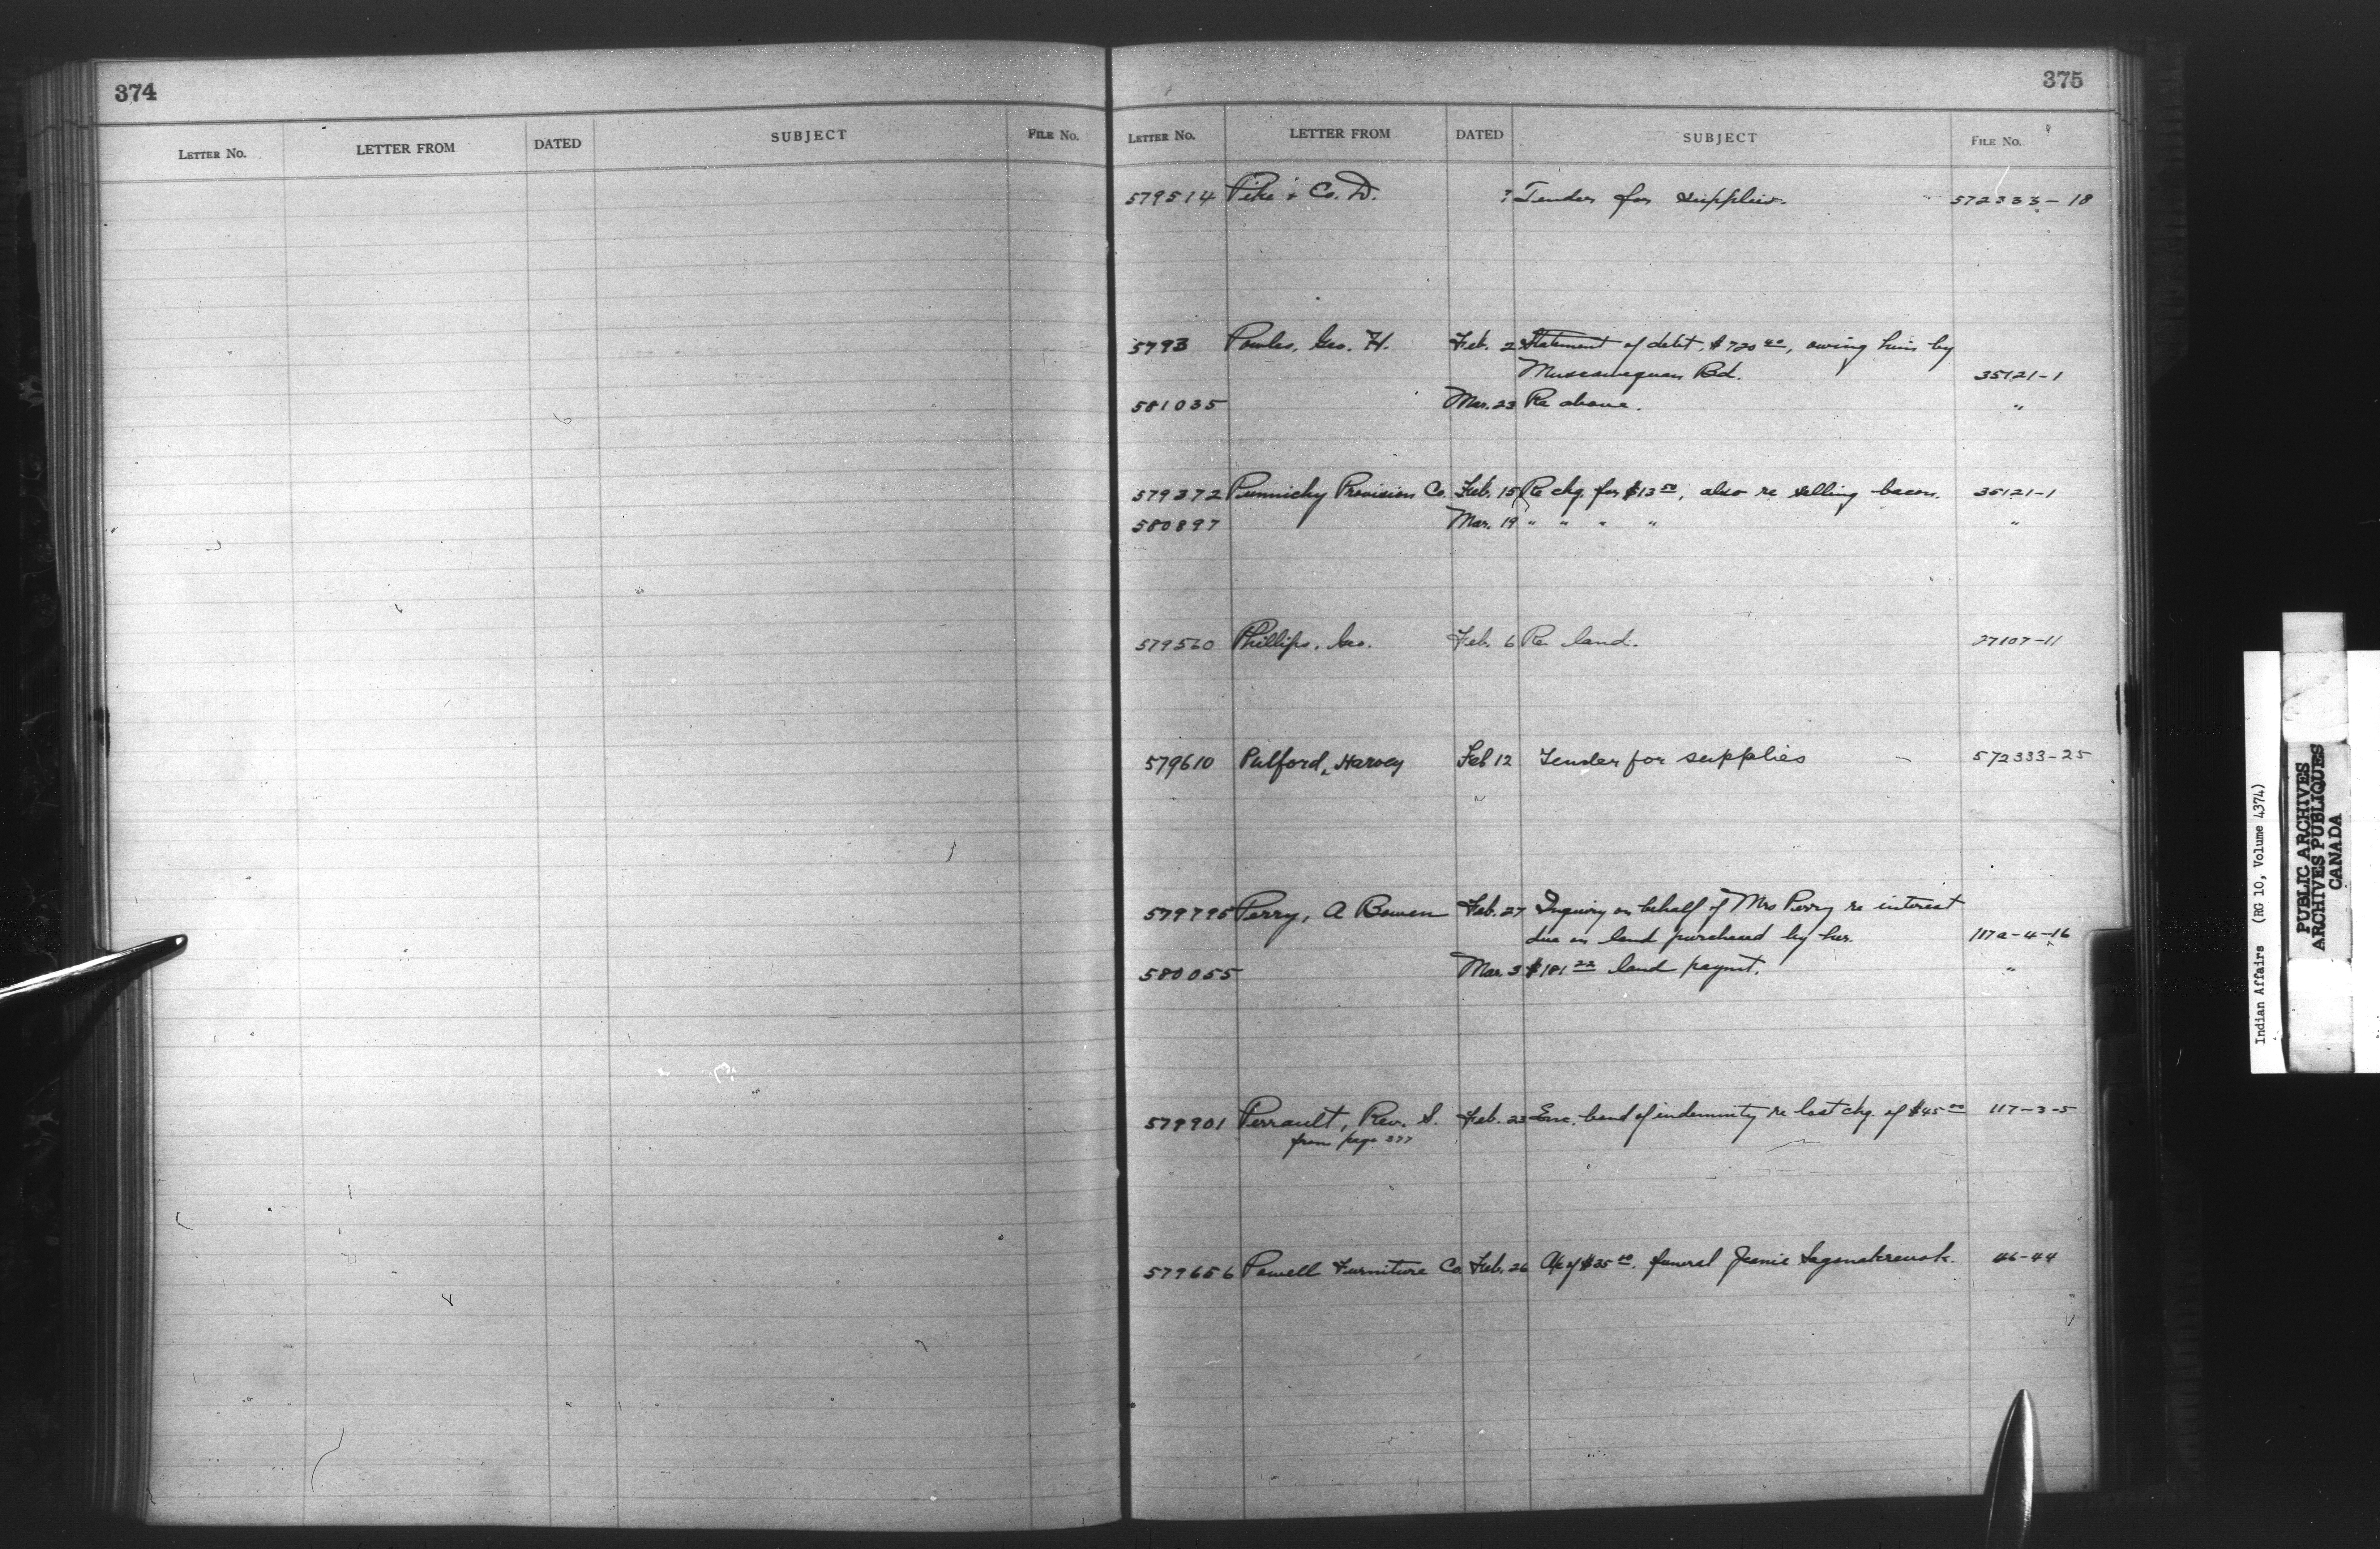 374
LETTER No. LETTER FROM DATED SUBJECT FILE No.
375
LETTER No. LETTER FROM DATED SUBJECT FILE No.
579514 Pike & Co. D. ? Tender for supplies. 572333-18
5793 Powles, Geo. H. Feb. 2 Statement of debt, $720 40, owing him by
Muscowequan Bd. 35121-1
581035 Mar. 23 Re above. "
579372 Punnichy Provision Co. Feb. 15 Re chq. for $13 50, also re selling bacon. 35121-1
580897 Mar. 19 " " " " "
579560 Phillips, Geo. Feb. 6 Re land. 27107-11
579610 Pulford, Harvey Feb 12 Tender for supplies 572333-25
579795 Perry, A Bowen Feb. 27 Inquiry on behalf of Mrs Perry re interest
due on land purchased by her. 117a-4-16
580055 Mar. 3 $181 22 land paymt. "
579901 Perrault, Rev. S. Feb. 23 Enc. bond of indemnity re lost chq. of $45 00 117-3-5
from page 377
579656 Powell Furniture Co. Feb. 26 A/c of $35 00, funeral Jeanie 46-44
Indian Affairs (RG 10, Volume 4374)
PUBLIC ARCHIVES
ARCHIVES PUBLIQUES
CANADA